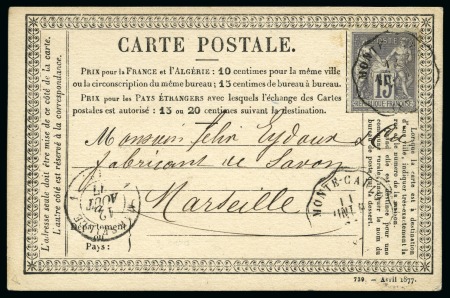 CARTE POSTALE.
PRIX pour la FRANCE et l'ALGÉRIE: 10 centimes pour la même ville
ou la circonscription du même bureau; 15 centimes de bureau à bureau.
PRIX pour les PAYS ÉTRANGERS avec lesquels l'échange des Cartes
postales est autorisé: 15 ou 20 centimes suivant la destination.
L'adresse seule doit être mise de ce côté de la carte.
L'autre côté est réservé à la correspondance.
15
Monsieur Felix Eydoux
fabricant de Savon
Marseille
MONTE-CA
11
12
AOUT
Département
ou
Pays:
Lorsque la carte est à destination
739. — Avril 1877.